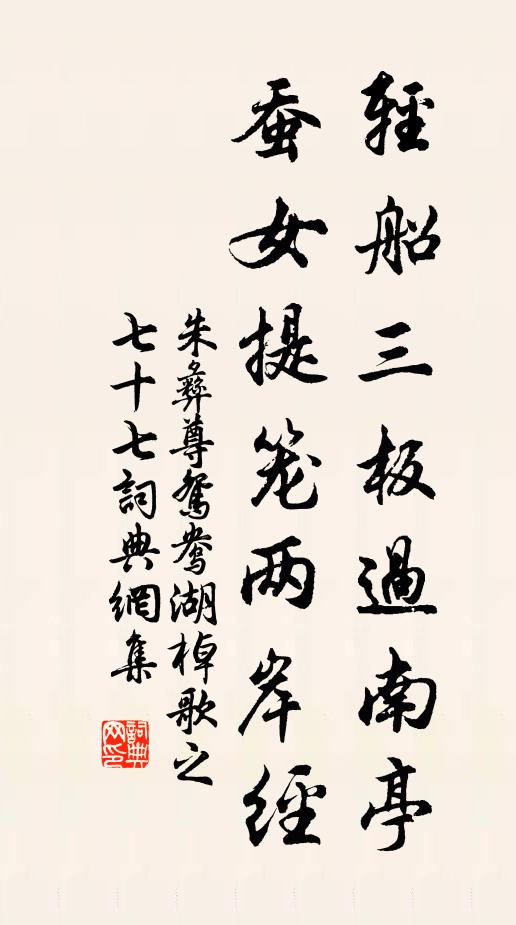 輕船三板過南亭
蚕女提笼两岸經
朱彝尊鴛鴦湖棹歌之
七十七詞典網集
詞典
网印